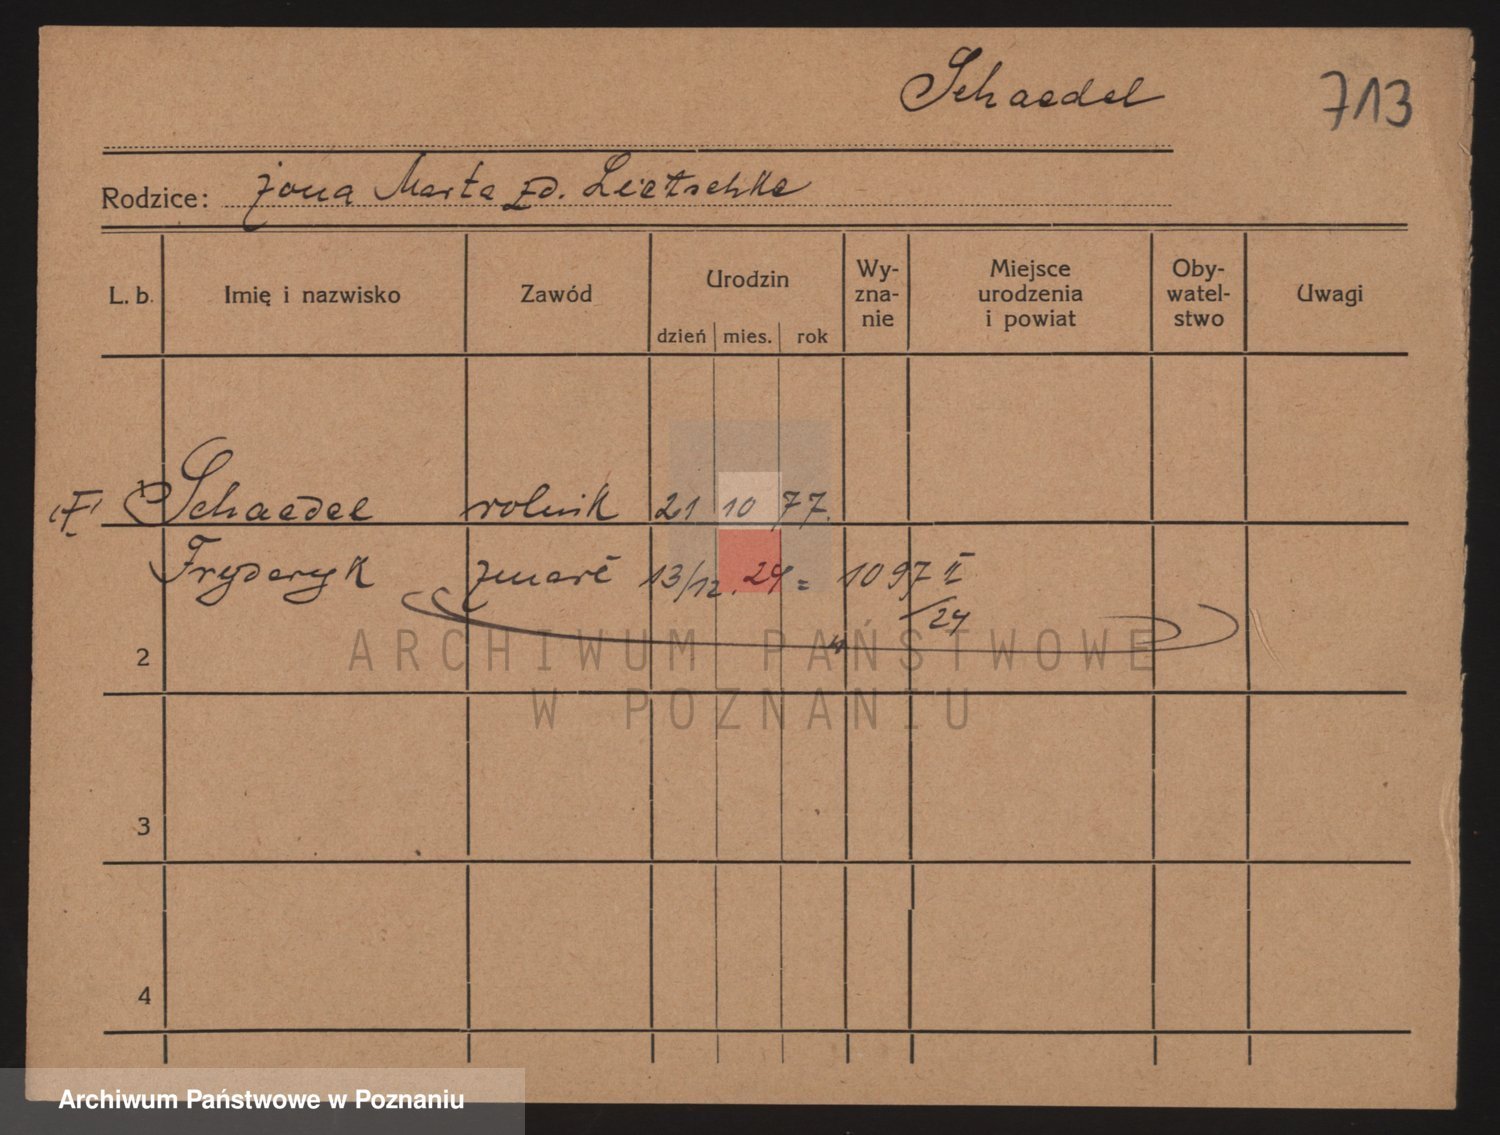 Schaedel
713
Rodzice: żona Marta zd. Lietschke
L. b. Imię i nazwisko Zawód Urodzin dzień mies. rok Wy-zna-nie Miejsce urodzenia i powiat Oby-watel-stwo Uwagi
1 Schaedel rolnik 21 10 77.
Fryderyk zmarł 13/12. 24 = 1097 II
/24
2
3
4
ARCHIWUM PAŃSTWOWE
W POZNANIU
Archiwum Państwowe w Poznaniu